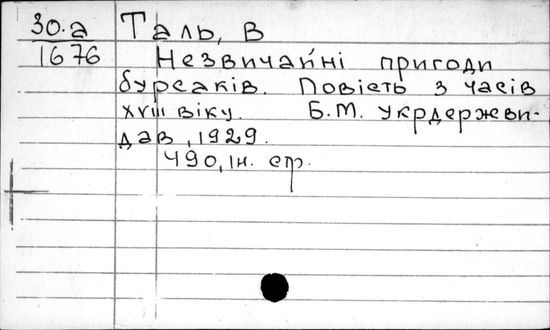 30.а Таль, В
1676 Незвичайні пригоди
бурсаків. Повість з часів
XVIII віку. Б.М. Укрдержви-
дав, 1929.
490, Ін. стр.